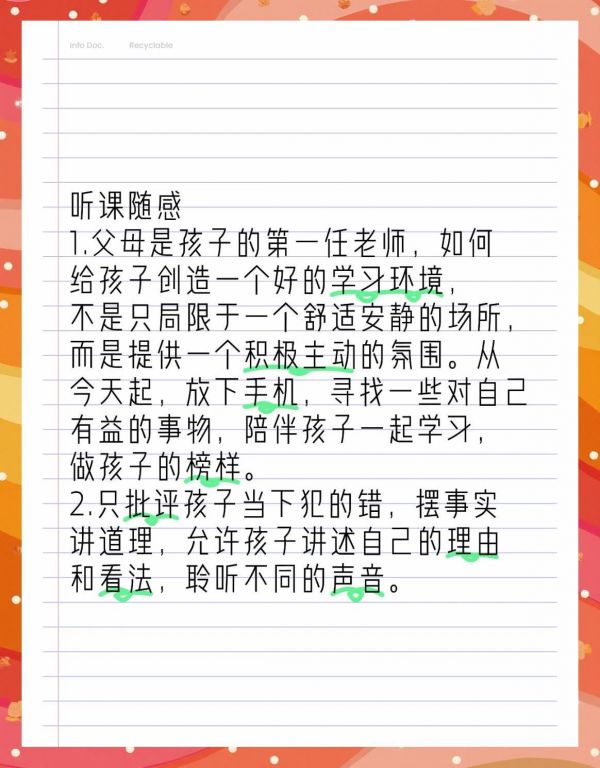 Info Doc. Recyclable
听课随感
1.父母是孩子的第一任老师，如何
给孩子创造一个好的学习环境，
不是只局限于一个舒适安静的场所，
而是提供一个积极主动的氛围。从
今天起，放下手机，寻找一些对自己
有益的事物，陪伴孩子一起学习，
做孩子的榜样。
2.只批评孩子当下犯的错，摆事实
讲道理，允许孩子讲述自己的理由
和看法，聆听不同的声音。